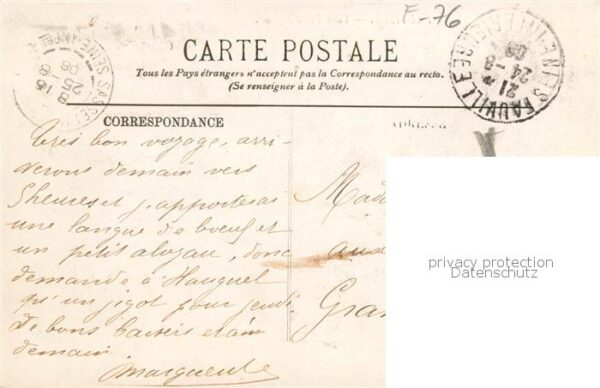 F-76
CARTE POSTALE
Tous les Pays étrangers n'acceptent pas la Correspondance au recto.
(Se renseigner à la Poste).
CORRESPONDANCE
ADRESSE
Très bon voyage, arri-
verons demain vers
5 heures et j'apporterai
une langue de bœuf et
un petit aloyau, donc
demande à Hauguel
qu'un gigot pour jeudi.
De bons baisers et à
demain
Marguerite
Mada
aux
Gran
privacy protection
Datenschutz
FAUVILLE
21
24 -8
09
SEINE
25
8